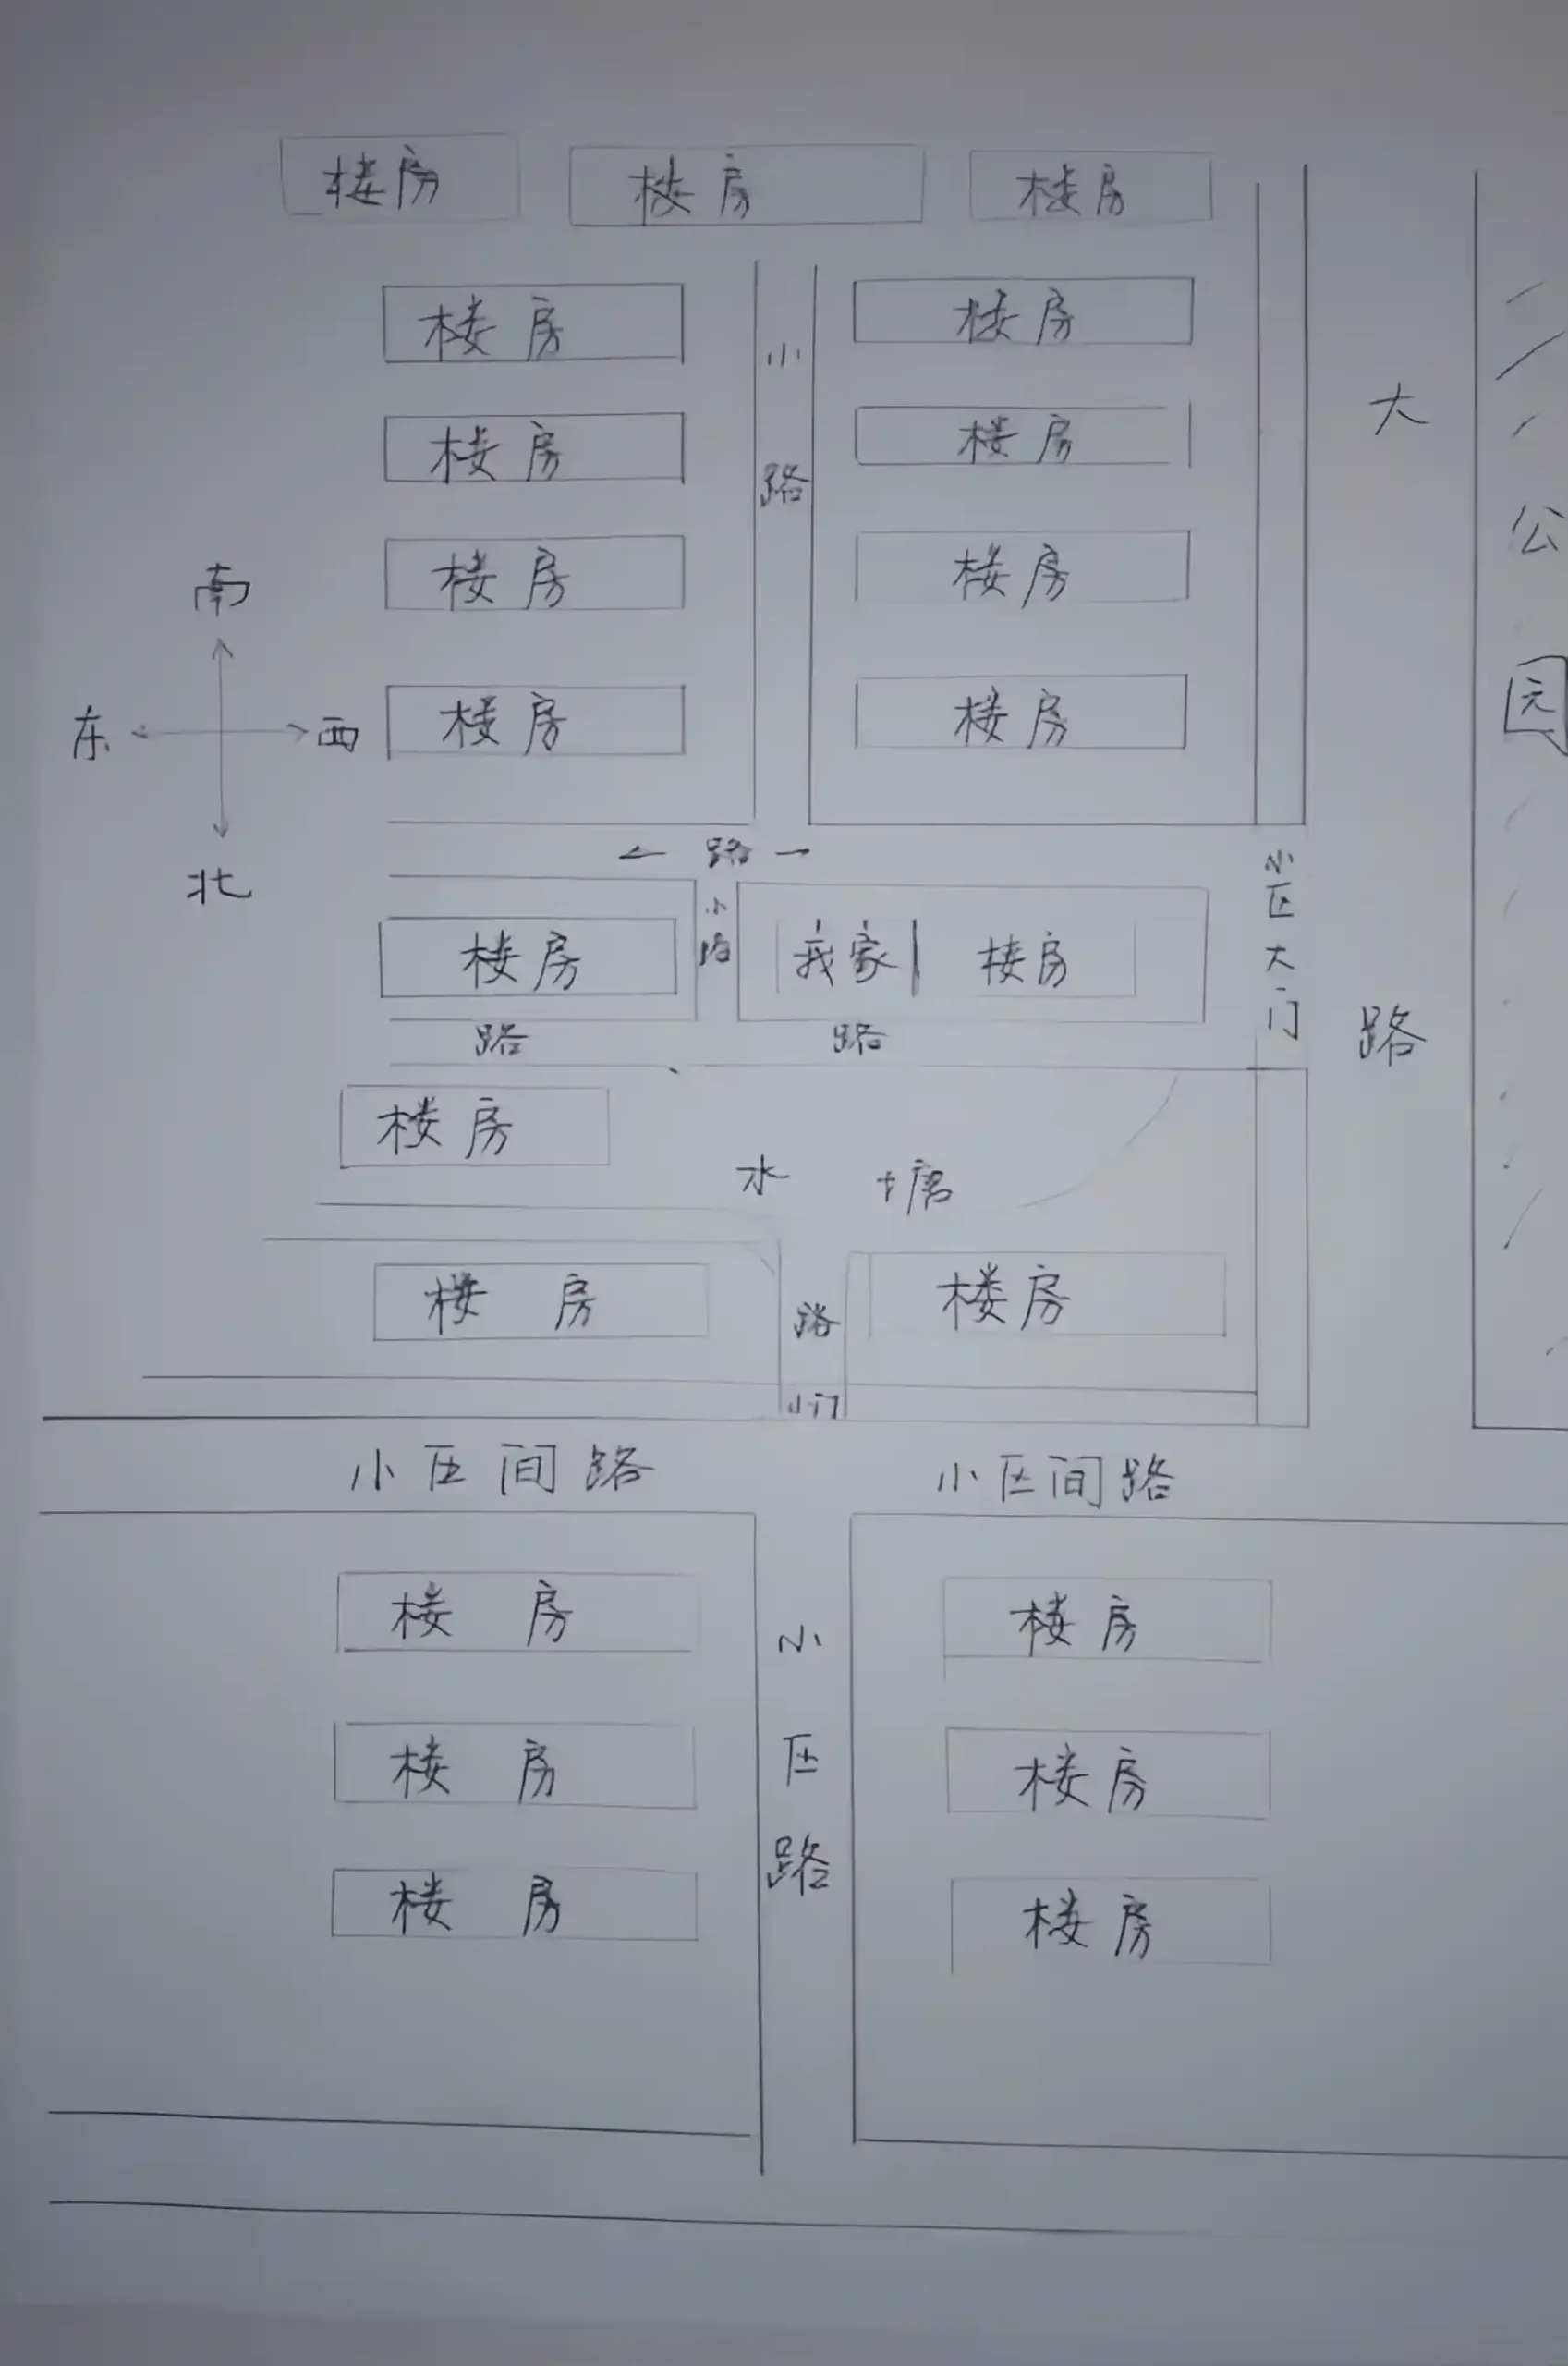 楼房 楼房 楼房
楼房 小路 楼房
楼房 楼房
楼房 楼房
楼房 楼房
大路
公园
南
东 西
北
← 路 →
楼房 小路 我家 楼房
小区大门
路 路
楼房
水塘
楼房 路 楼房
小门
小区间路 小区间路
楼房 小区路 楼房
楼房 楼房
楼房 楼房